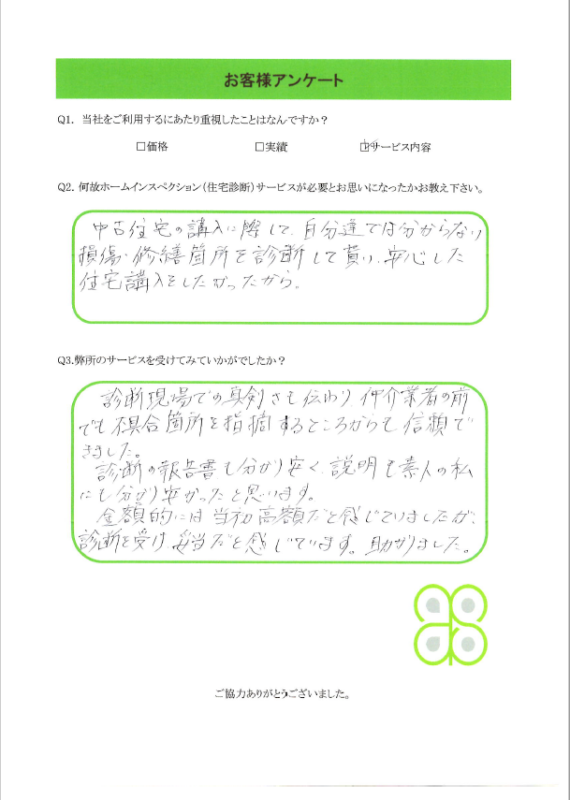 お客様アンケート
Q1. 当社をご利用するにあたり重視したことはなんですか？
□価格 □実績 ☑サービス内容
Q2. 何故ホームインスペクション（住宅診断）サービスが必要とお思いになったかお教え下さい。
中古住宅の講入に際して、自分達では分からない
損傷・修繕箇所を診断して貰い、安心した
住宅講入をしたかったから。
Q3.弊所のサービスを受けてみていかがでしたか？
診断現場での真剣さも伝わり 仲介業者の前
でも不具合箇所を指摘するところからも信頼で
きました。
診断の報告書も分かり安く、説明も素人の私
にも分かり安かったと思います。
金額的には当初高額だと感じていましたが、
診断を受け、妥当だと感じています。助かりました。
ご協力ありがとうございました。